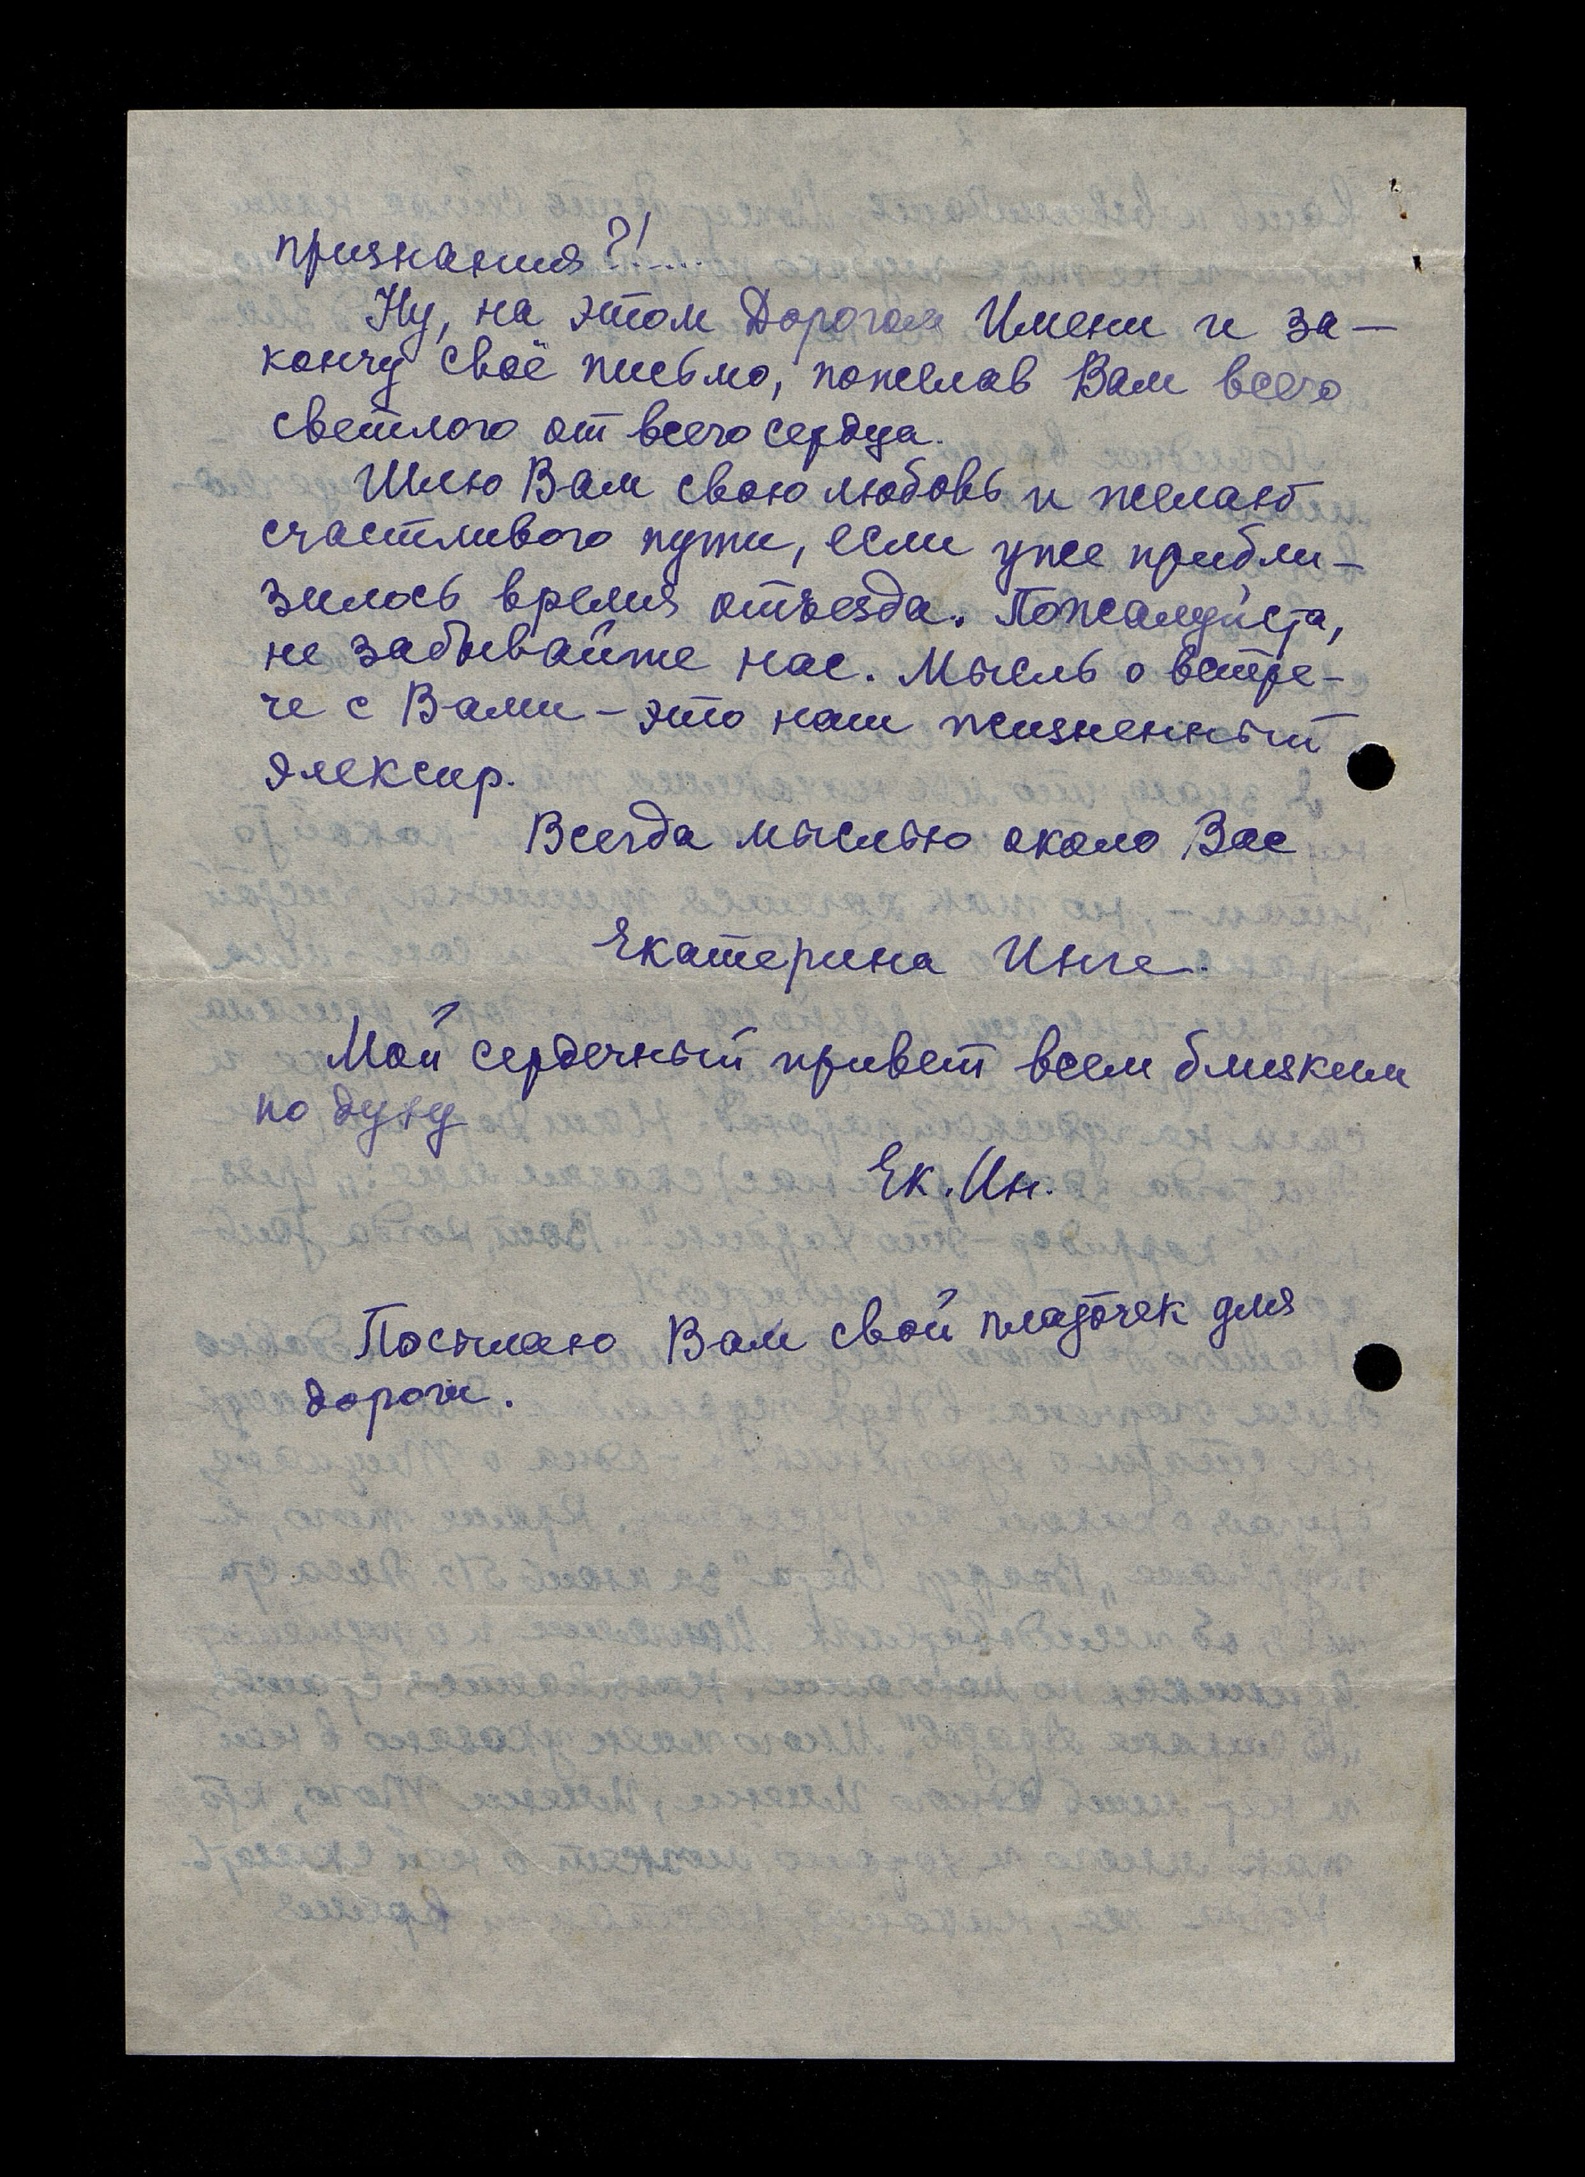 признания?!.....
Ну, на этом Дорогом Имени и за-
кончу своё письмо, пожелав Вам всего
светлого от всего сердца.
Шлю Вам свою любовь и желаю
счастливого пути, если уже прибли-
зилось время отъезда. Пожалуйста,
не забывайте нас. Мысль о встре-
че с Вами - это наш жизненный
элексир.
Всегда мыслью около Вас
Екатерина Инге.
Мой сердечный привет всем близким
по духу
Ек. Ин.
Посылаю Вам свой платочек для
дороги.